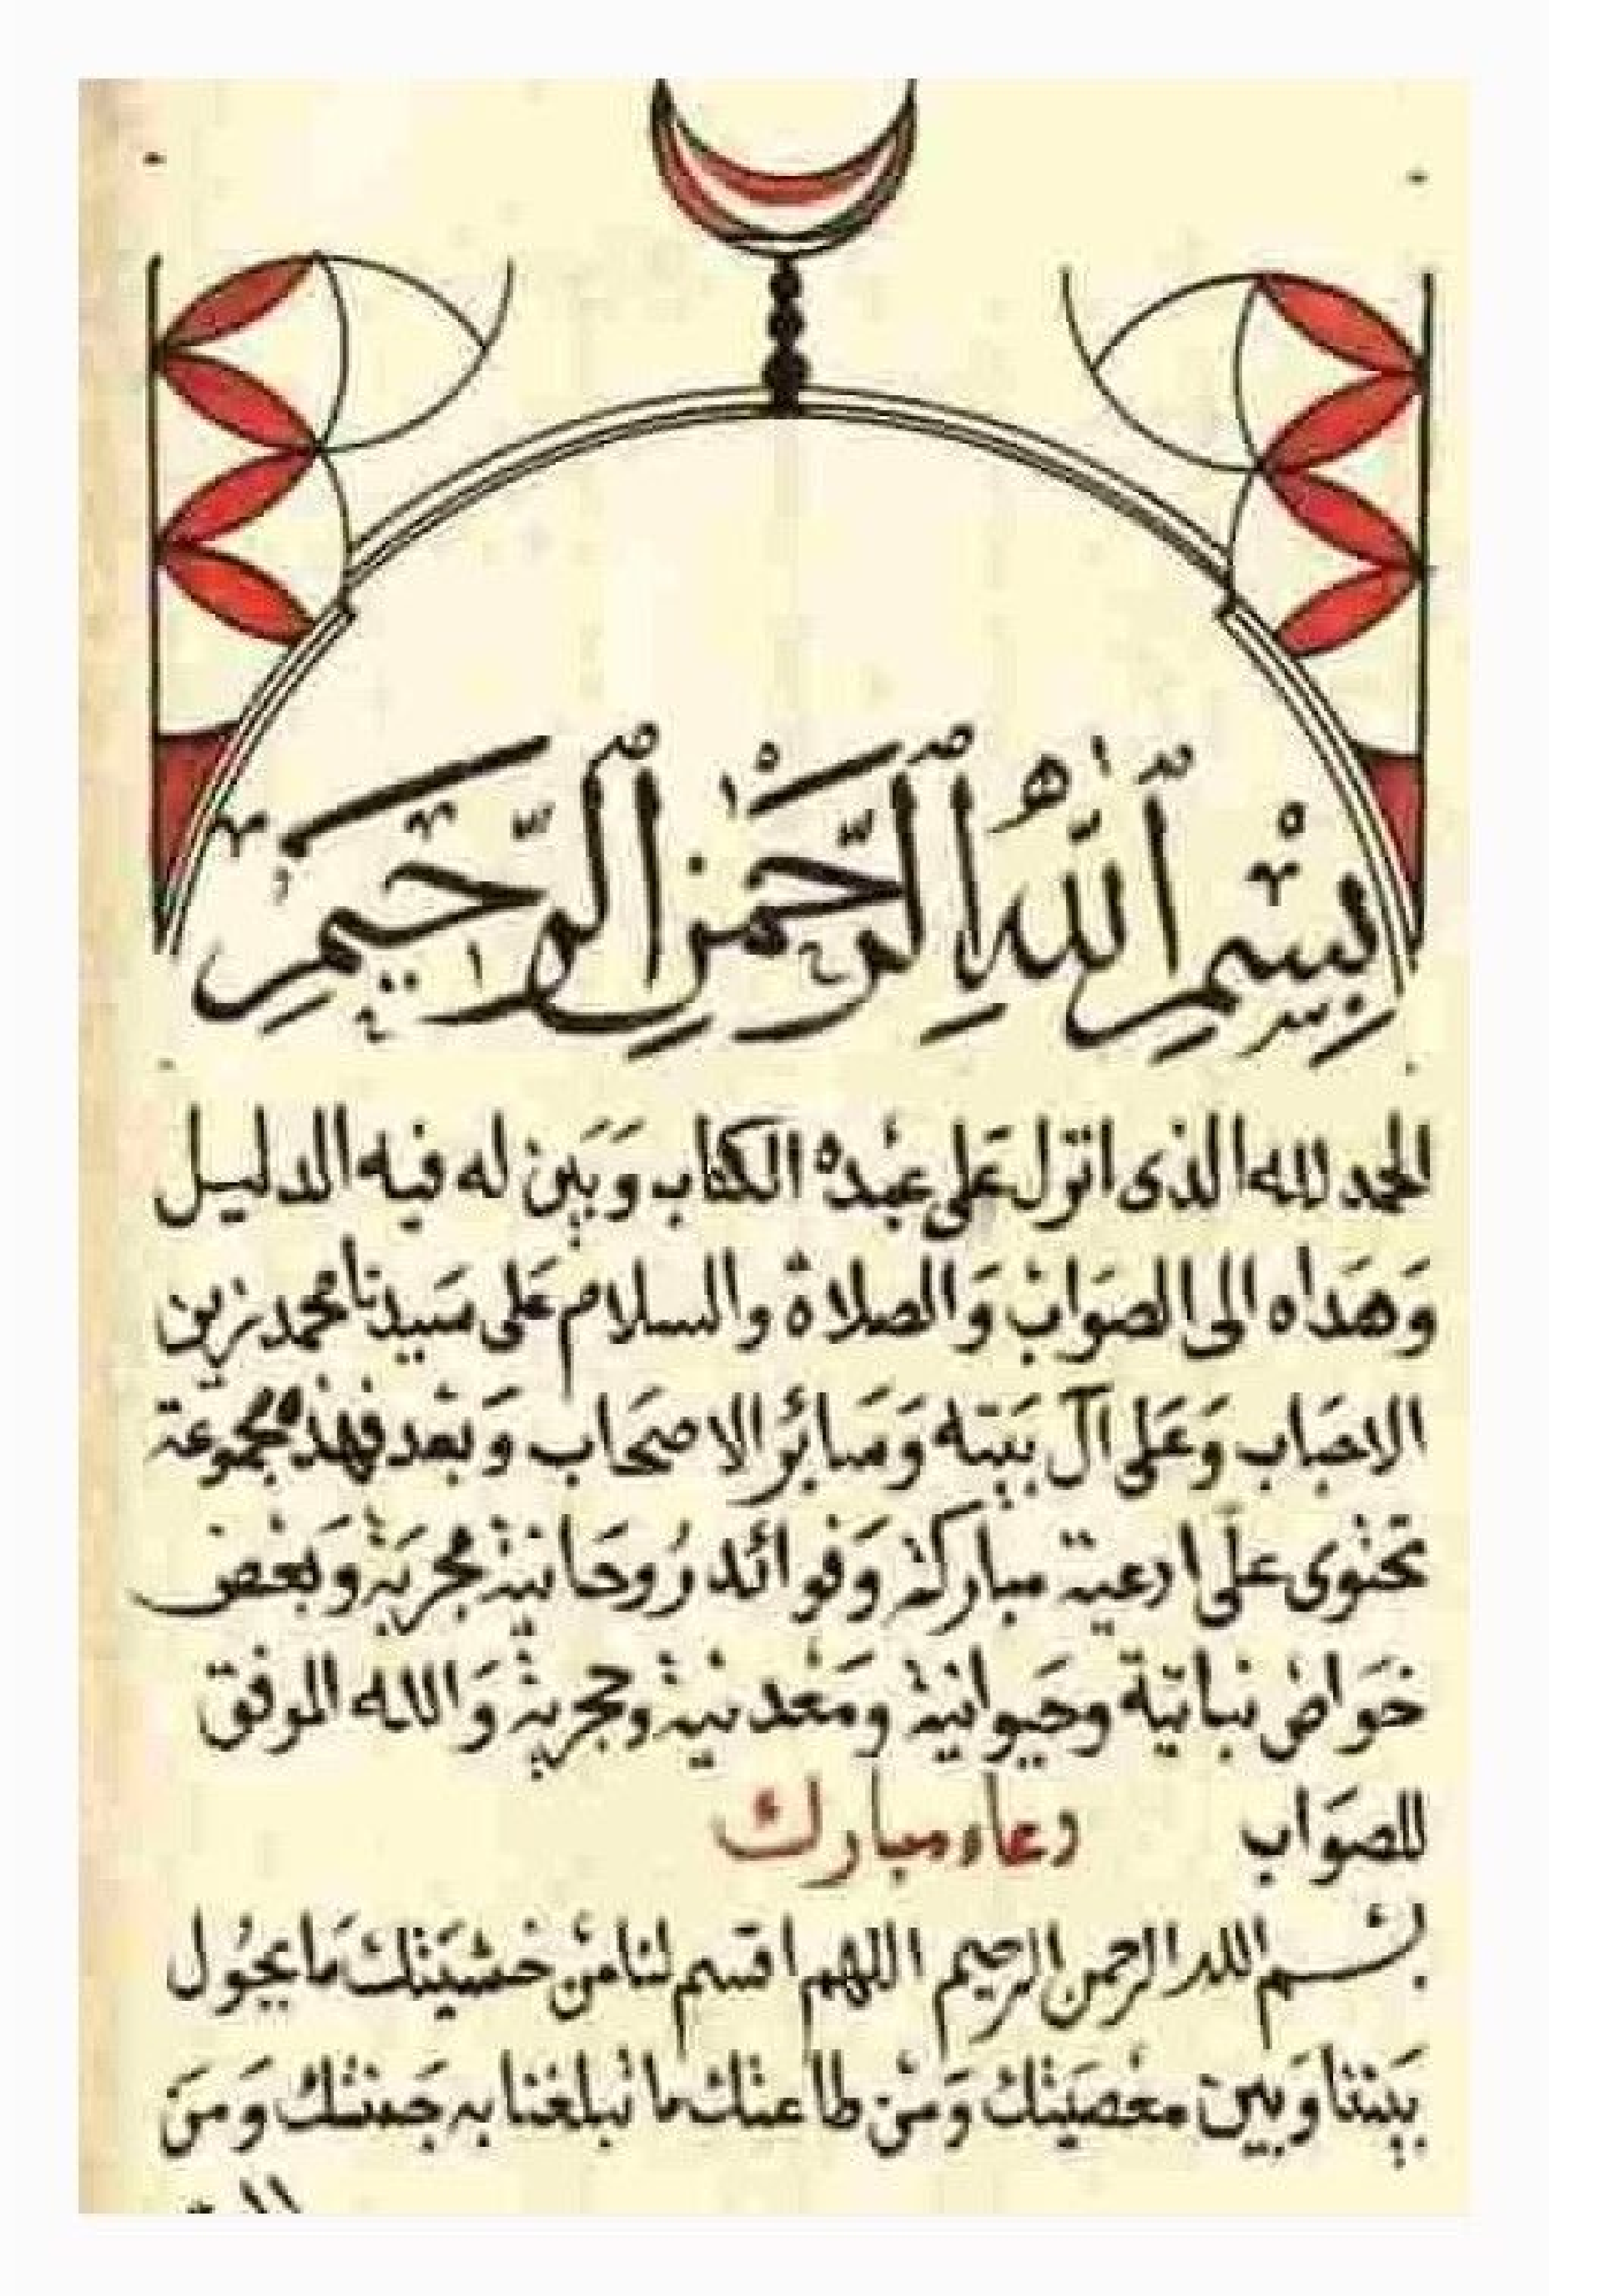 بِسْمِ ٱللَّهِ ٱلرَّحْمَٰنِ ٱلرَّحِيمِ
الحمد لله الذى انزل عَلى عَبْده الكتاب وَبَين له فيه الدليل
وَهَداه الى الصَوابْ وَالصلاة والسلام عَلى سَيدنا محمد زين
الاحبَاب وَعَلى آل بَيته وَسَائر الاصحَاب وَبَعْد فهذه مجموعة
تحتوى على ادعية مباركة وَفوائد رُوحَانية مجربَة وَبَعْض
خوَاص نباتية وحَيوانية ومَعْدنية وحجرية وَالله الموفق
للصوَاب
دعاء مبارك
بسم الله الرحمن الرحيم اللهم اقسم لنا منْ خشيَتك مَا يحُول
بَيننا وَبين معْصيَتك وَمنْ طاعتك ما تبلغنا به جَنتك وَمنَ